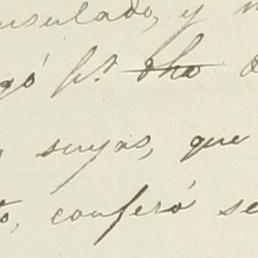 nsulado, y
gó p.r dho
suyas, que
to, confesó se